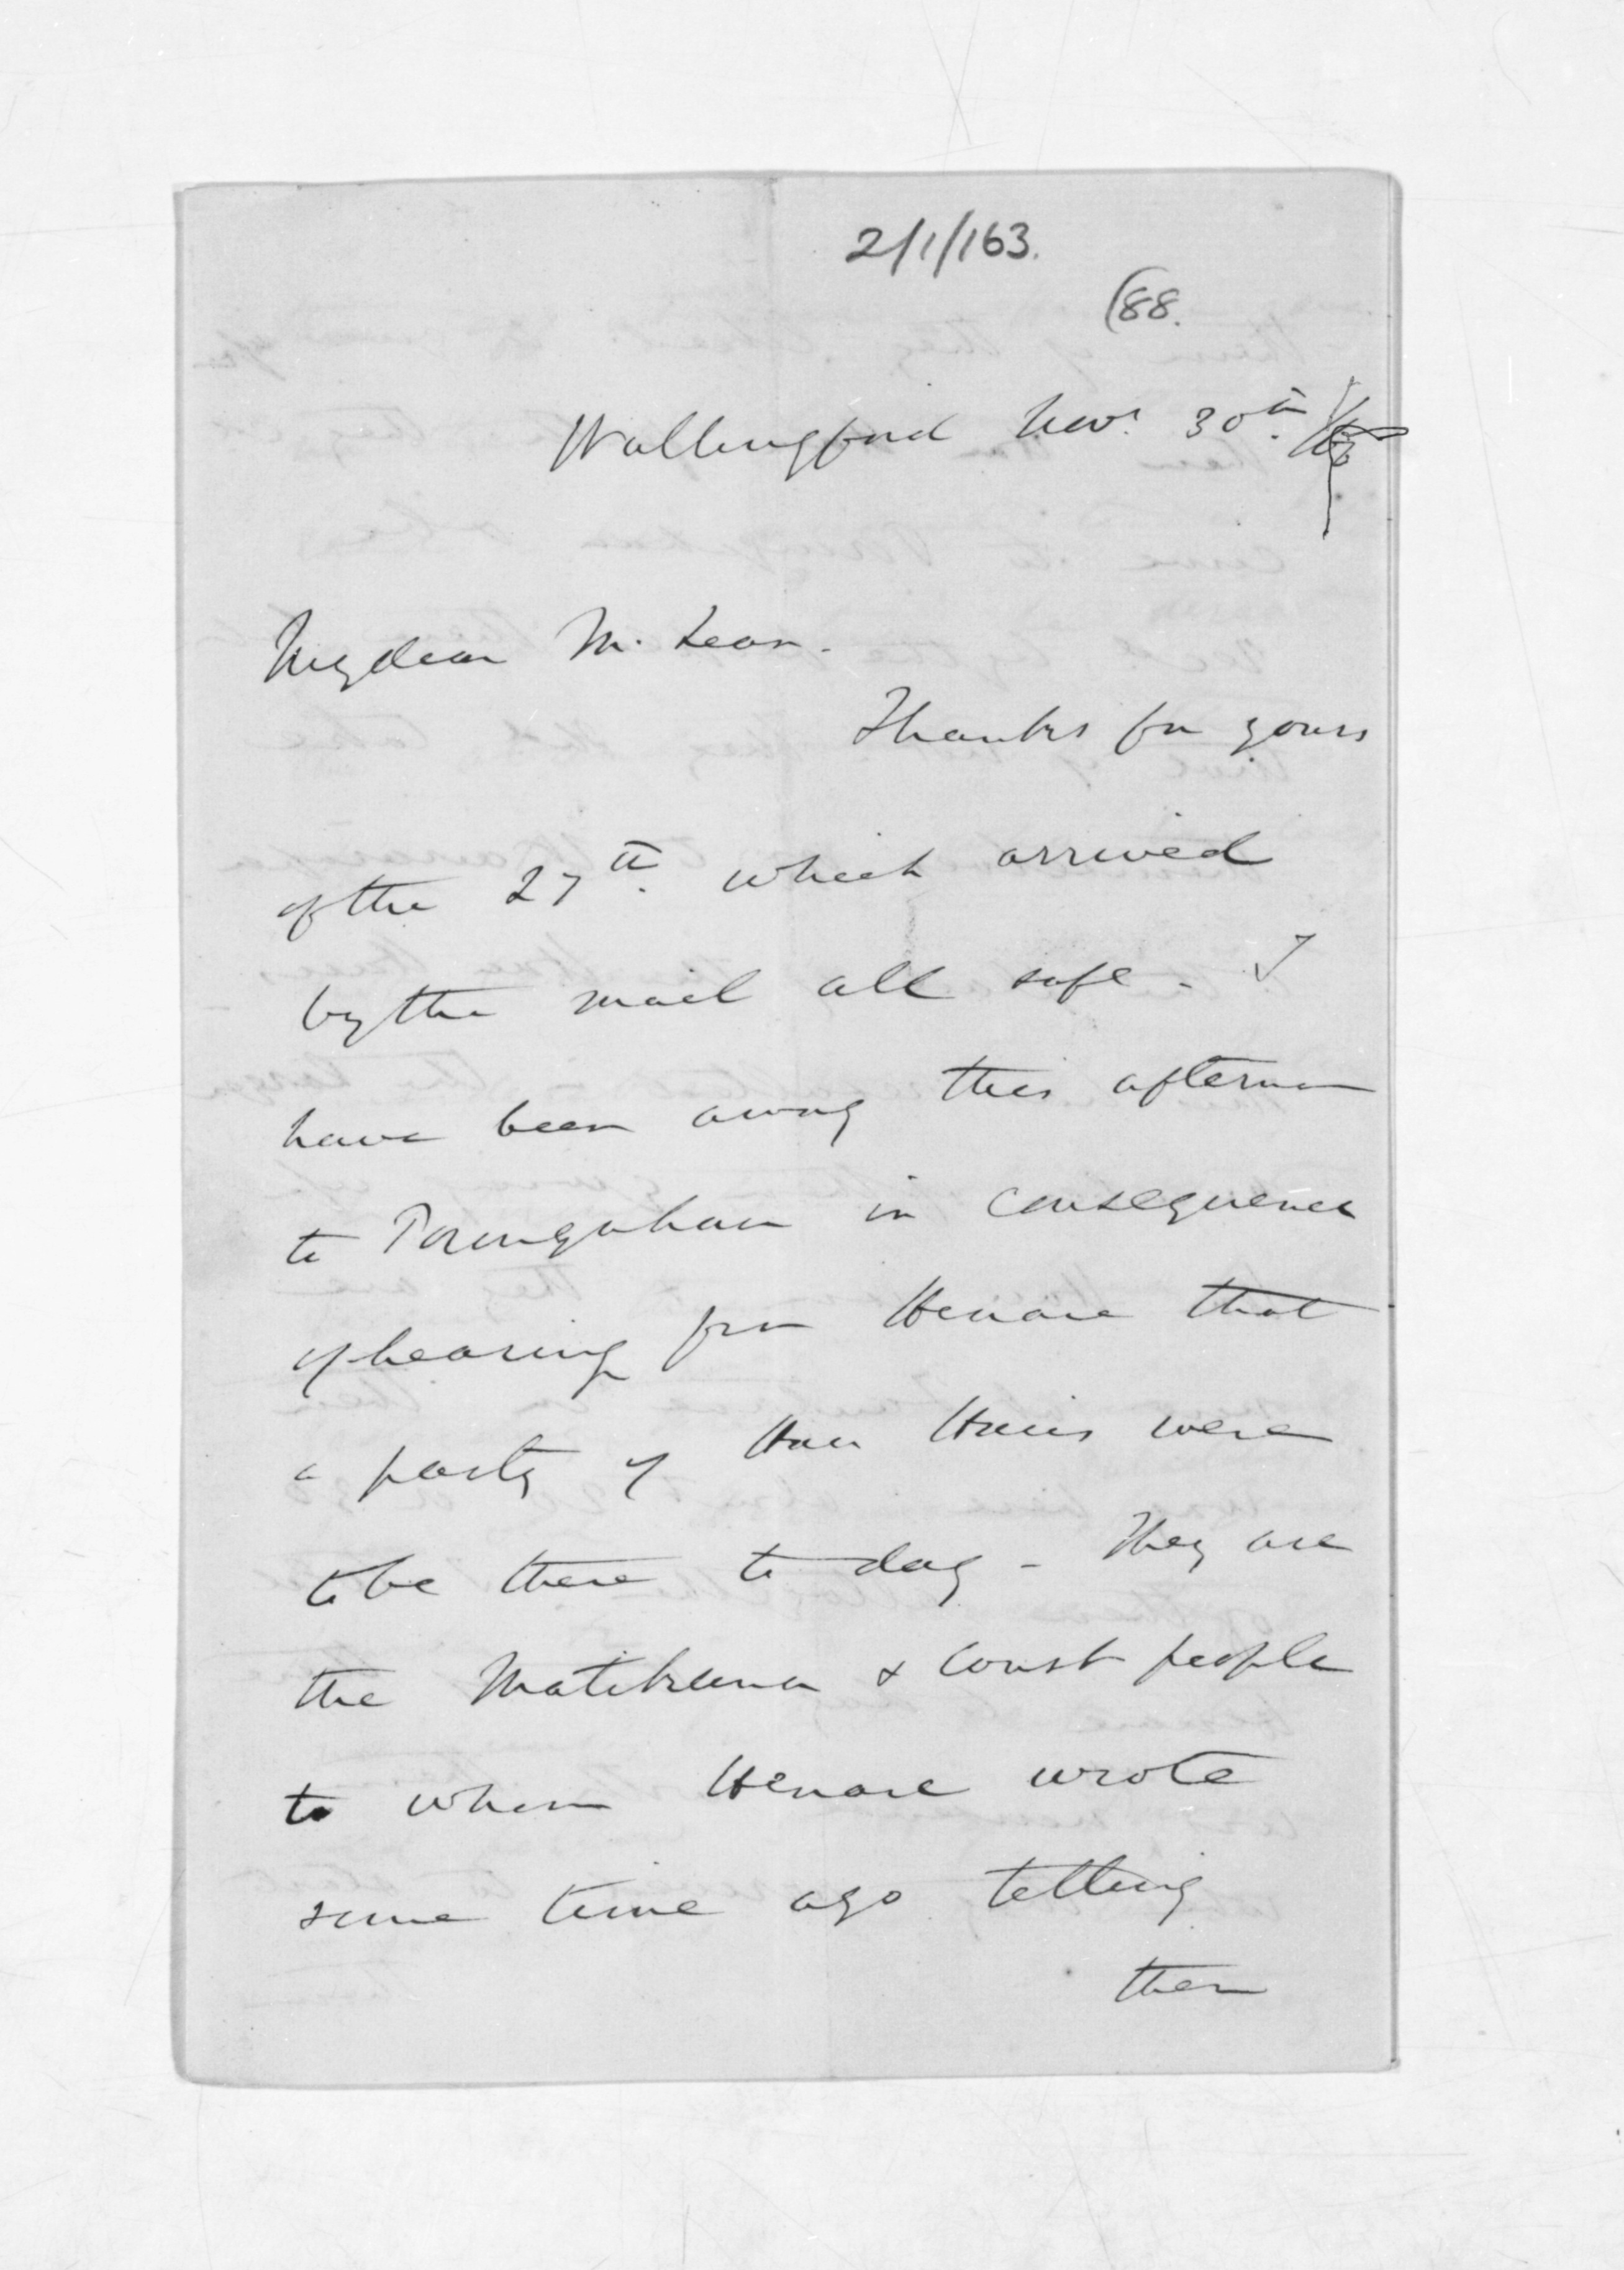 2/1/163.
(88.
Wallingford Novr. 30th.
My dear McLean.
Thanks for yours
of the 27th. which arrived
by the mail all safe - I
have been away this afternoon
to Porangahau in consequence
of hearing from Henare that
a party of Hau Haus were
to be there to day - They are
the Matikauna & Coast people
to whom Henare wrote
some time ago telling
them